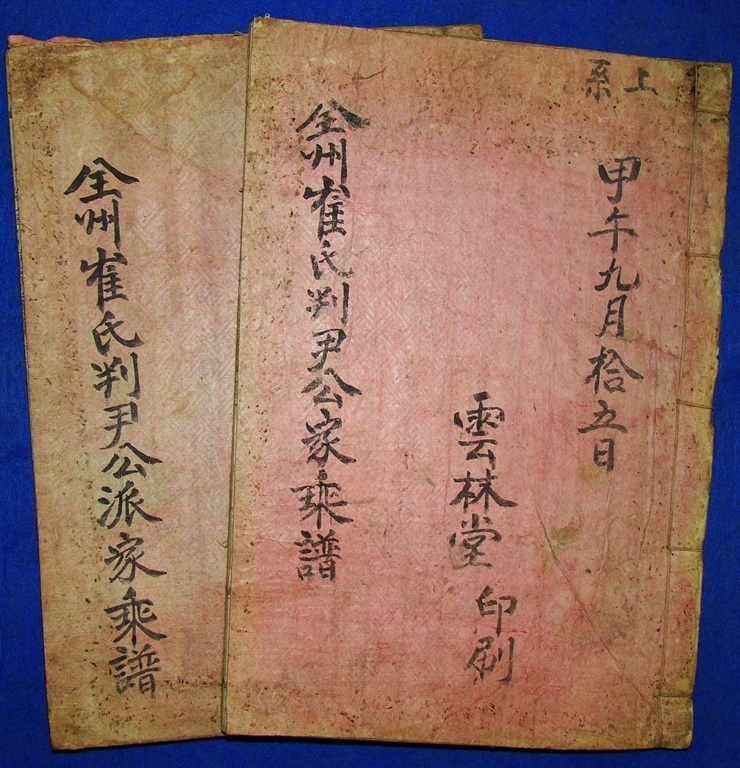 上系
甲午九月拾五日
雲林堂 印刷
全州崔氏判尹公家乘譜
全州崔氏判尹公派家乘譜